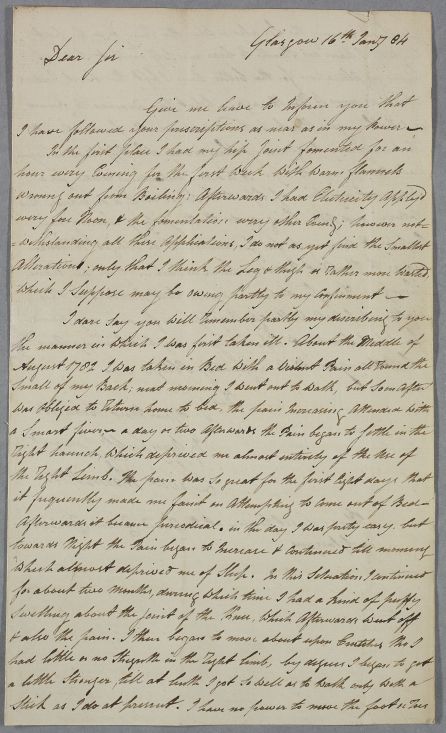 Glasgow 16th Jany 84
Dear Sir
Give me leave to Inform you that
I have followed your prescriptions as near as in my Power —
In the first place I had my hip Joint fomented for an
hour every Evening for the first Week With Warm flannels
wrung out from Boiling; Afterwards I had Electricity Apply'd
every fore Noon, & the fomentation every other Evening; however not-
-withstanding all these Applications, I do not as yet find the Smallest
Alteration; only that I think the Leg & thigh is rather more Wasted,
Which I Suppose may be owing partly to my Confinement —
I dare Say you Will remember partly my describing to you
the manner in Which I was first taken ill. About the Middle of
August 1782 I was taken in Bed With a Violent Pain all round the
Small of my Back; next morning I went out to Walk, but Soon After
Was obliged to return home to bed, the pain Increasing Attended with
a Smart fever — a day or two Afterwards the Pain began to Settle in the
right haunch, Which deprived me almost entirely of the Use of
the right Limb. The pain Was So great for the first eight days that
it frequently made me faint on Attempting to Come out of Bed —
Afterwards it became periodical. in the day I was pretty easy, but
towards Night the Pain began to Increase & Continued till morning
Which almost deprived me of Sleep. In this Situation I Continued
for about two Months, during Which time I had a kind of puffy
Swelling about the Joint of the Knee, Which Afterwards Went off
& also the pain. I then began to move about upon Crutches tho I
had little or no Strength in the right limb, by degrees I began to get
a little Stronger, till at length I got So Well as to Walk only With a
Stick as I do at present. I have no power to move the foot or Toes